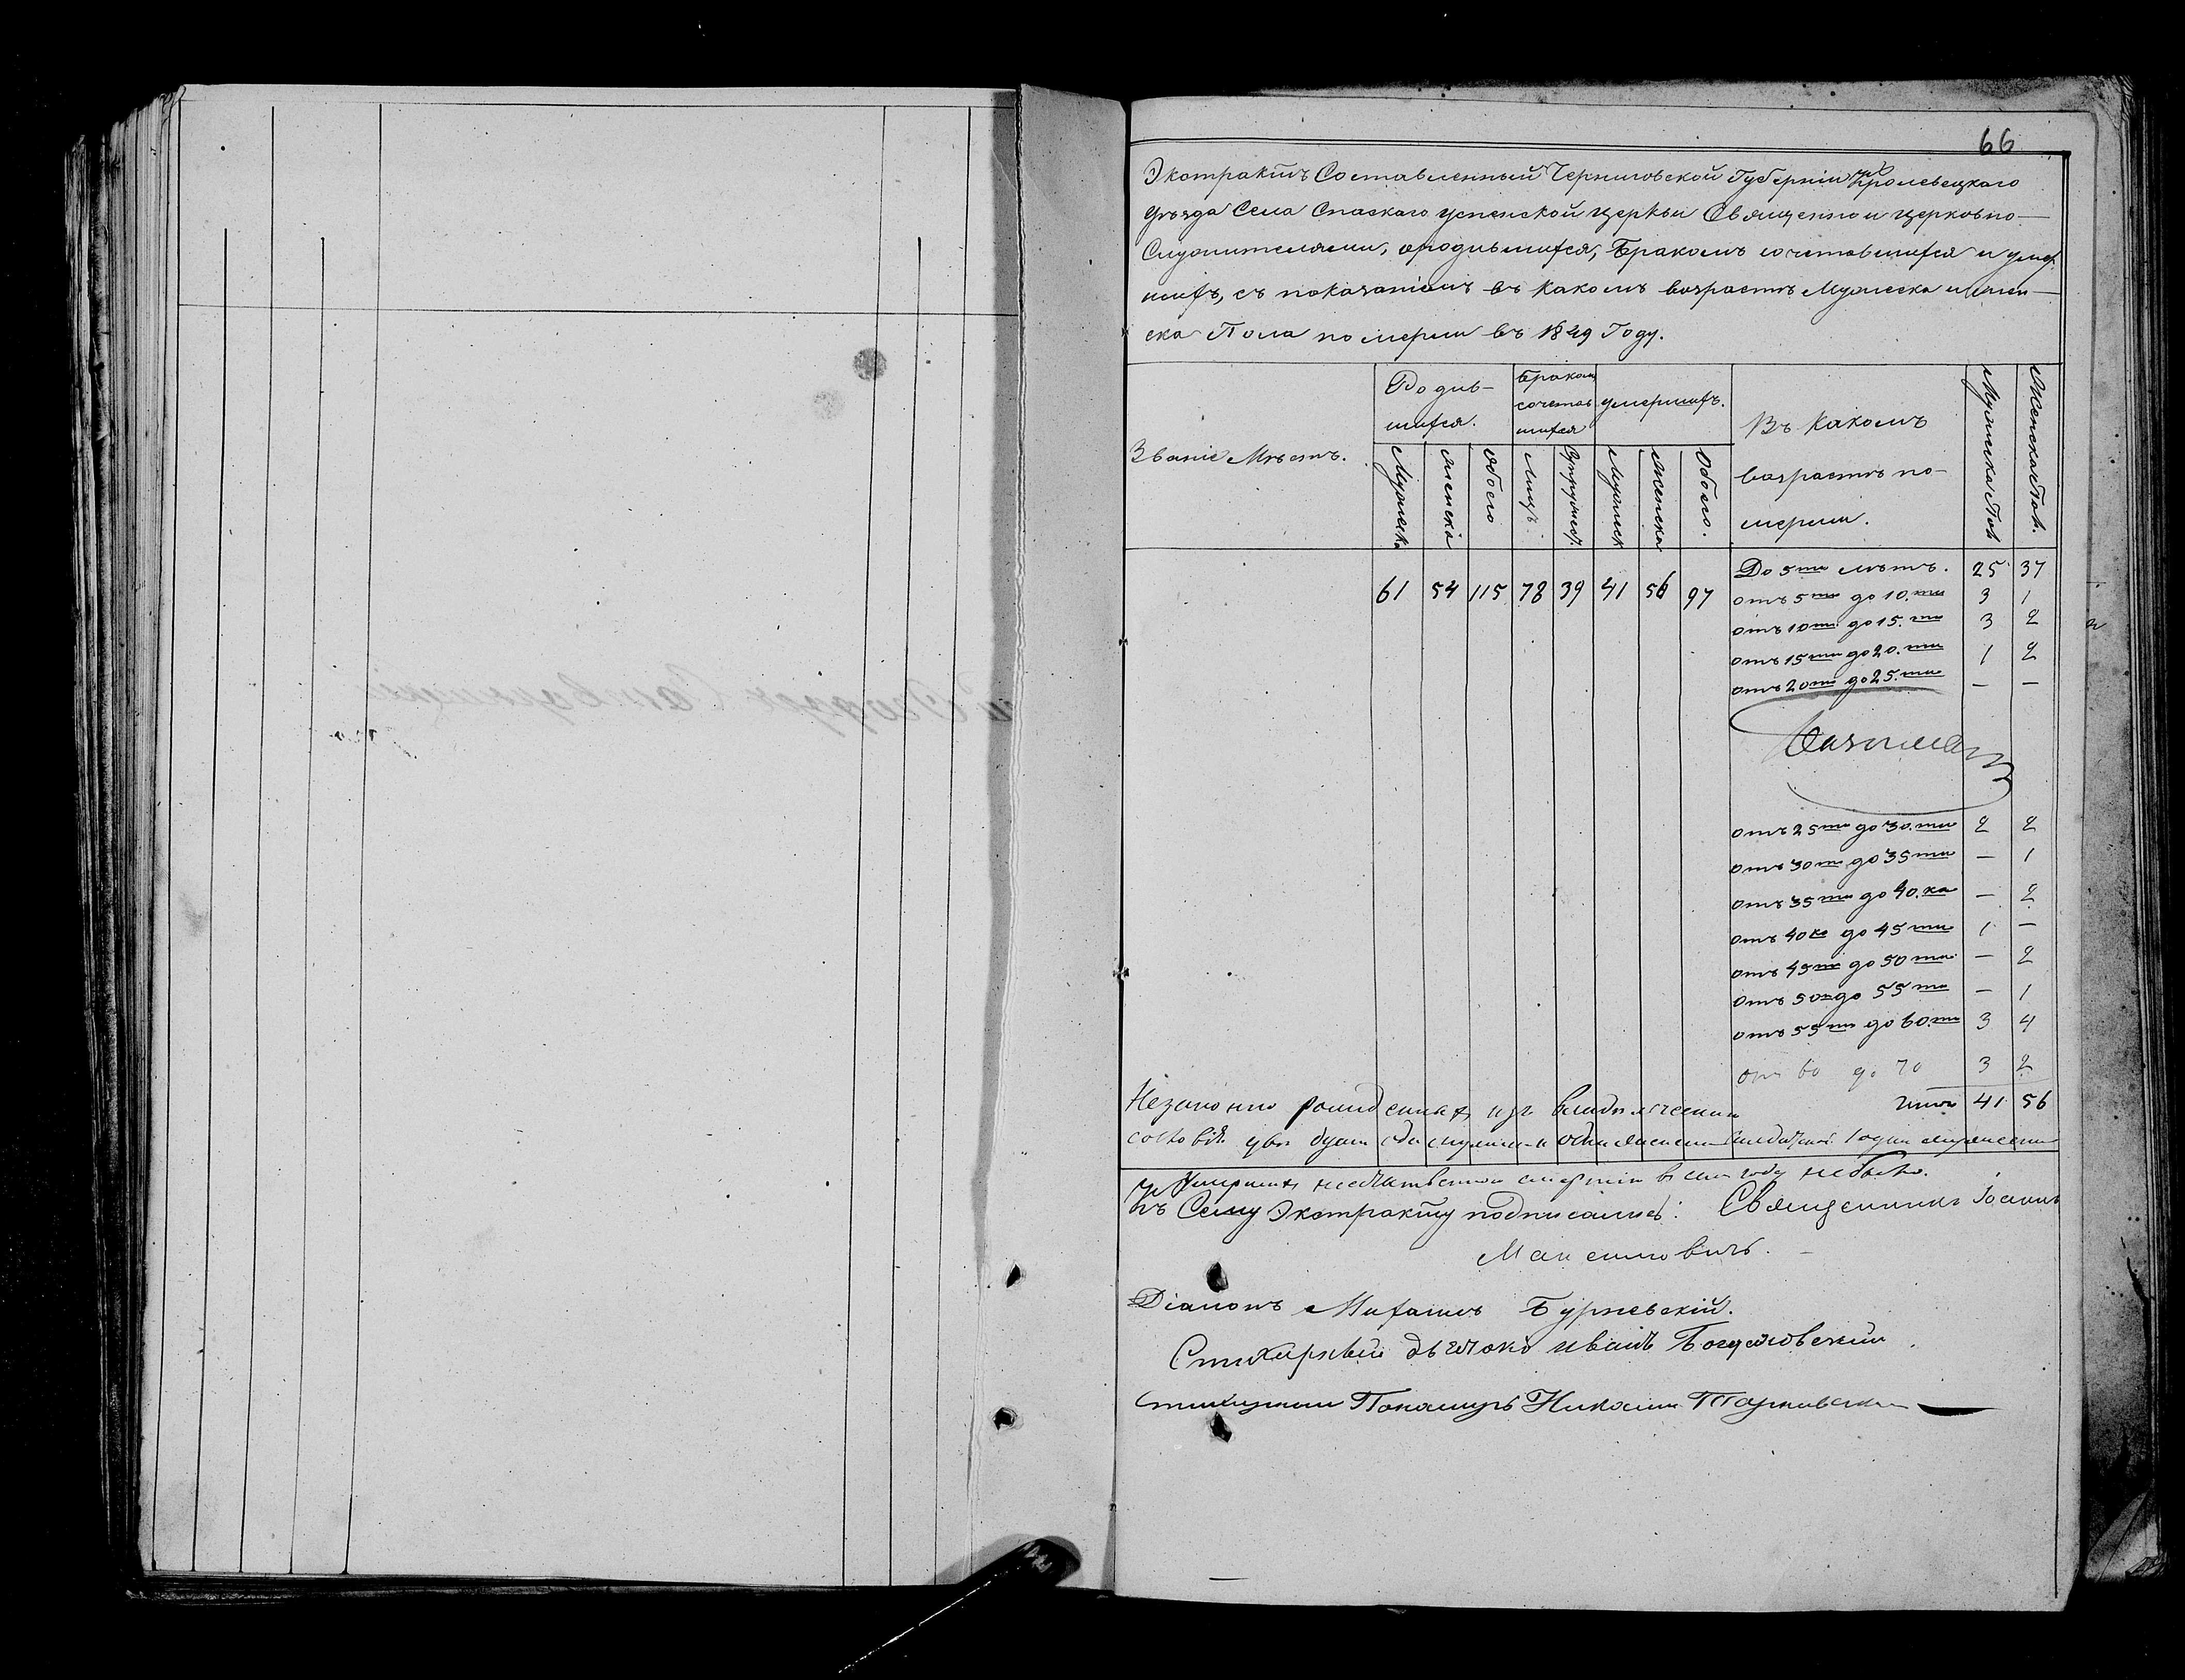 66
Экстрактъ Составленный Черниговской Губерніи Кролевецкаго
уѣзда Села Спаскаго успенской церкви Священно и церковно-
Служителями, ородившихся, Бракомъ сочетавшихся и умер-
шихъ, съ показаніемъ въ какомъ возрастѣ Мужеска и жен-
ска Пола померли въ 1849 Году.
Званіе Мѣстъ.
Родив-
шихся.
Мужеска
женска
Обоего
Бракомъ
сочетав
шихся
Лицъ
Супружес.
умершихъ.
Мужеск
Женска
Обоего.
Въ какомъ
возрастѣ по-
мерли.
Мужеска Пол
Женска Пол.
61 54 115 78 39 41 56 97
До 5ти лѣтъ. 25 37
отъ 5ти до 10.ти 3 1
отъ 10ти до 15.ти 3 2
отъ 15ти до 20.ти 1 2
отъ 20ти до 25.ти — —
отъ 25ти до 30.ти 2 2
отъ 30ти до 35ти — 1
отъ 35ти до 40.ка — 2
отъ 40ка до 45ти 1 —
отъ 45ти до 50ти — 2
отъ 50ти до 55ти — 1
отъ 55ти до 60.ти 3 4
отъ 60 до 70 3 2
Итого 41 56
Незаконно рожденныхъ изъ
Умершихъ неестественною смертію въ семъ году небыло.
Къ Сему Экстракту подписались: Священникъ Іоаннъ
Максимовичъ.
Діаконъ Михаилъ Бурчевскій.
Стихарный дьячокъ иванъ
Пономарь Николай